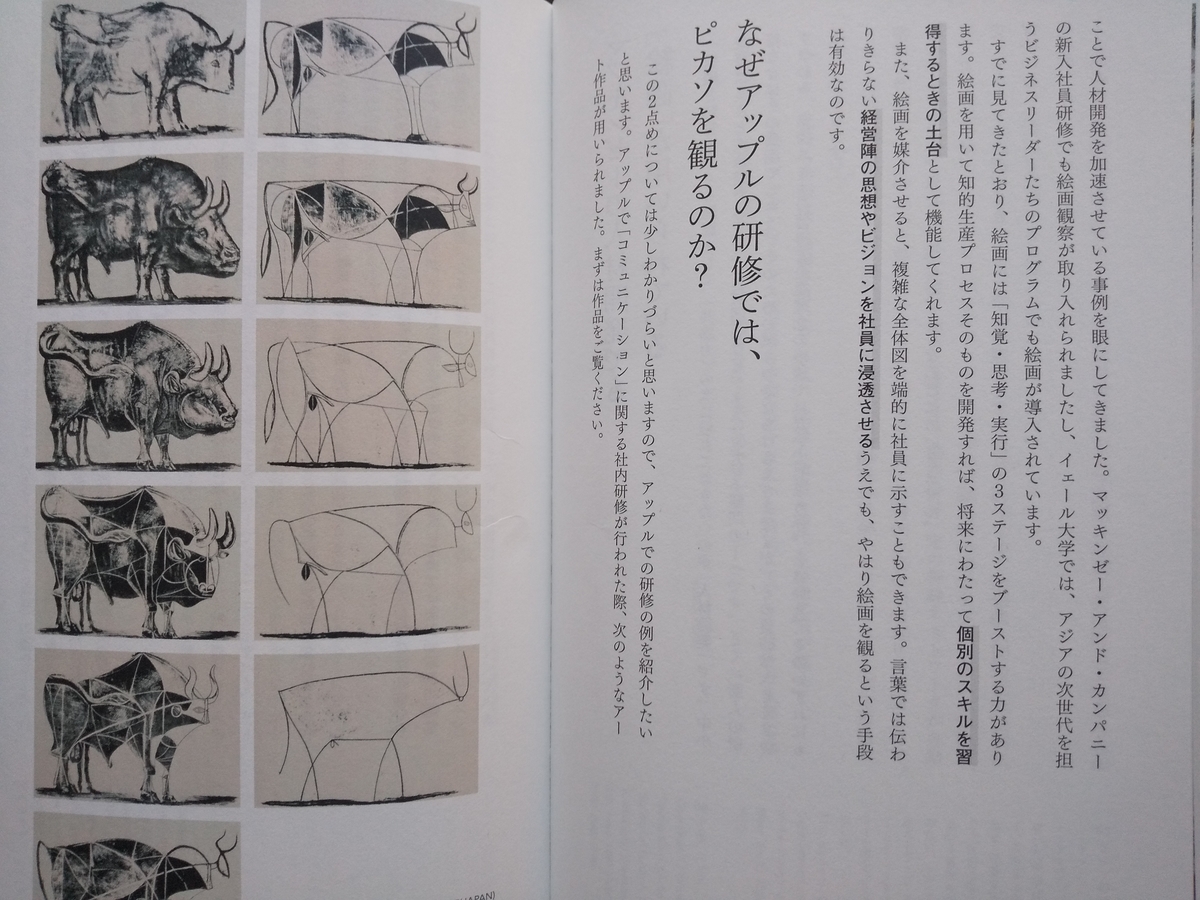 ことで人材開発を加速させている事例を眼にしてきました。マッキンゼー・アンド・カンパニー
の新入社員研修でも絵画観察が取り入れられましたし、イェール大学では、アジアの次世代を担
うビジネスリーダーたちのプログラムでも絵画が導入されています。
すでに見てきたとおり、絵画には「知覚・思考・実行」の3ステージをブーストする力があり
ます。絵画を用いて知的生産プロセスそのものを開発すれば、将来にわたって個別のスキルを習
得するときの土台として機能してくれます。
また、絵画を媒介させると、複雑な全体図を端的に社員に示すこともできます。言葉では伝わ
りきらない経営陣の思想やビジョンを社員に浸透させるうえでも、やはり絵画を観るという手段
は有効なのです。
なぜアップルの研修では、
ピカソを観るのか?
この2点めについては少しわかりづらいと思いますので、アップルでの研修の例を紹介したい
と思います。アップルで「コミュニケーション」に関する社内研修が行われた際、次のようなアー
ト作品が用いられました。まずは作品をご覧ください。
JAPAN)